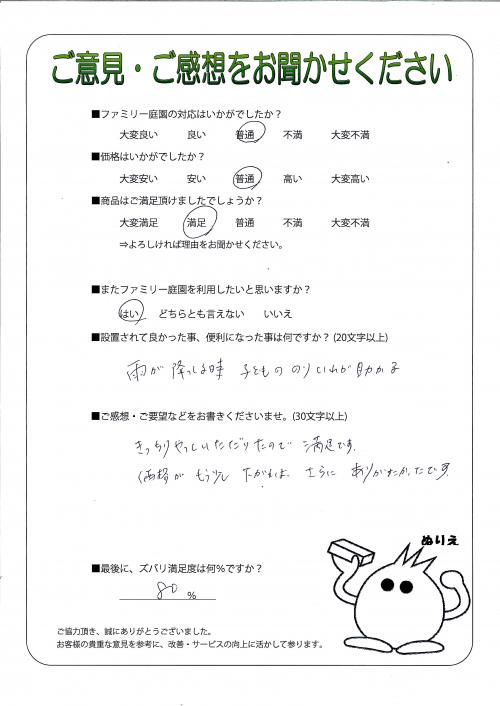 ご意見・ご感想をお聞かせください
■ファミリー庭園の対応はいかがでしたか？
大変良い 良い 普通 不満 大変不満
■価格はいかがでしたか？
大変安い 安い 普通 高い 大変高い
■商品はご満足頂けましたでしょうか？
大変満足 満足 普通 不満 大変不満
⇒よろしければ理由をお聞かせください。
■またファミリー庭園を利用したいと思いますか？
はい どちらとも言えない いいえ
■設置されて良かった事、便利になった事は何ですか？(20文字以上)
雨が降っしる時 子どもの のりいれが助かる
■ご感想・ご要望などをお書きくださいませ。(30文字以上)
きっちりやっていただけたので 満足です。
価格が もう少し 下がれば、さらに ありがたかったです。
ぬりえ
■最後に、ズバリ満足度は何％ですか？
80 %
ご協力頂き、誠にありがとうございました。
お客様の貴重な意見を参考に、改善・サービスの向上に活かして参ります。